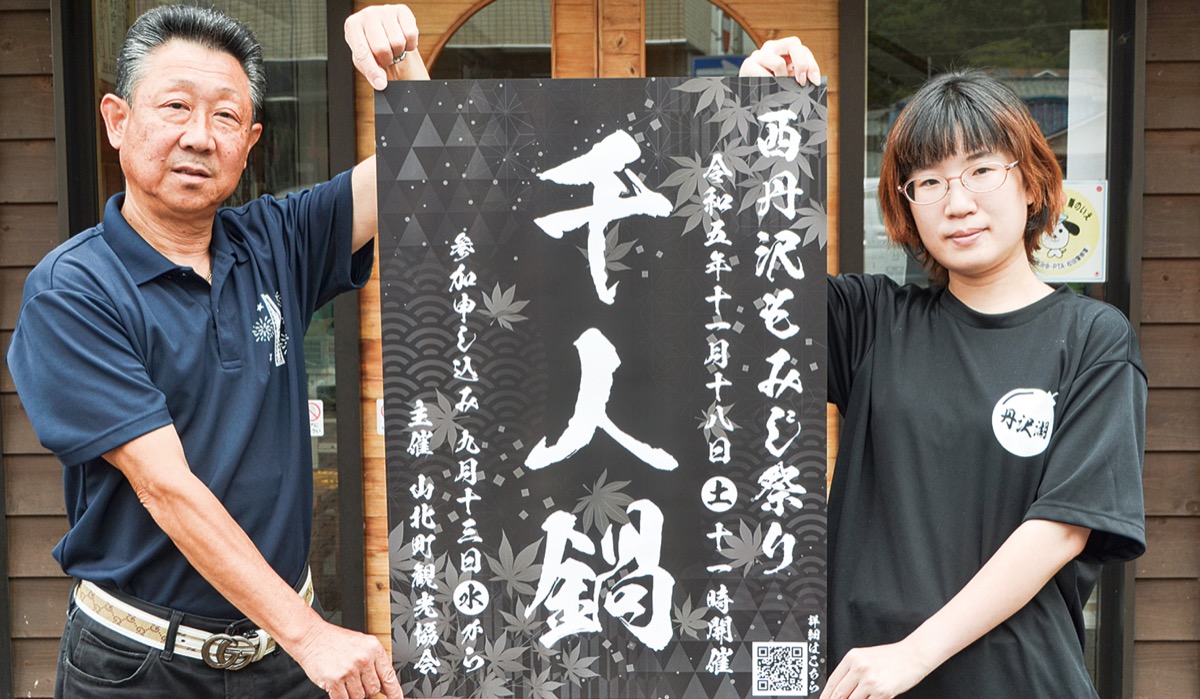 西丹沢もみじ祭り
令和五年十一月十八日土十一時開催
千人鍋
参加申し込み 九月十三日水から
主催 山北町観光協会
詳細はこちら
丹沢湖